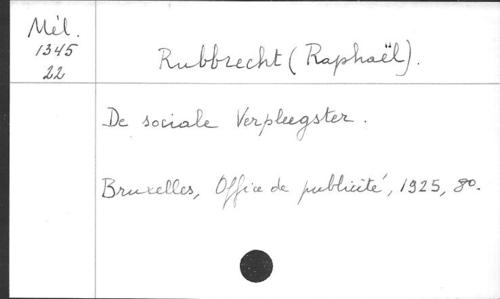 Mél.
1345
22
Rubbrecht (Raphaël).
De sociale Verpleegster.
Bruxelles, Office de publicité, 1925, 8o.